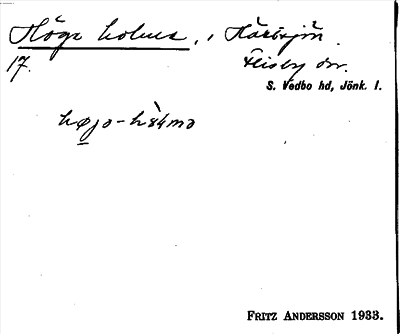 Höga holme, i Häresjön
17. Flisby sn.
S. Vedbo hd, Jönk. l.
høja-hòlmə
FRITZ ANDERSSON 1933.